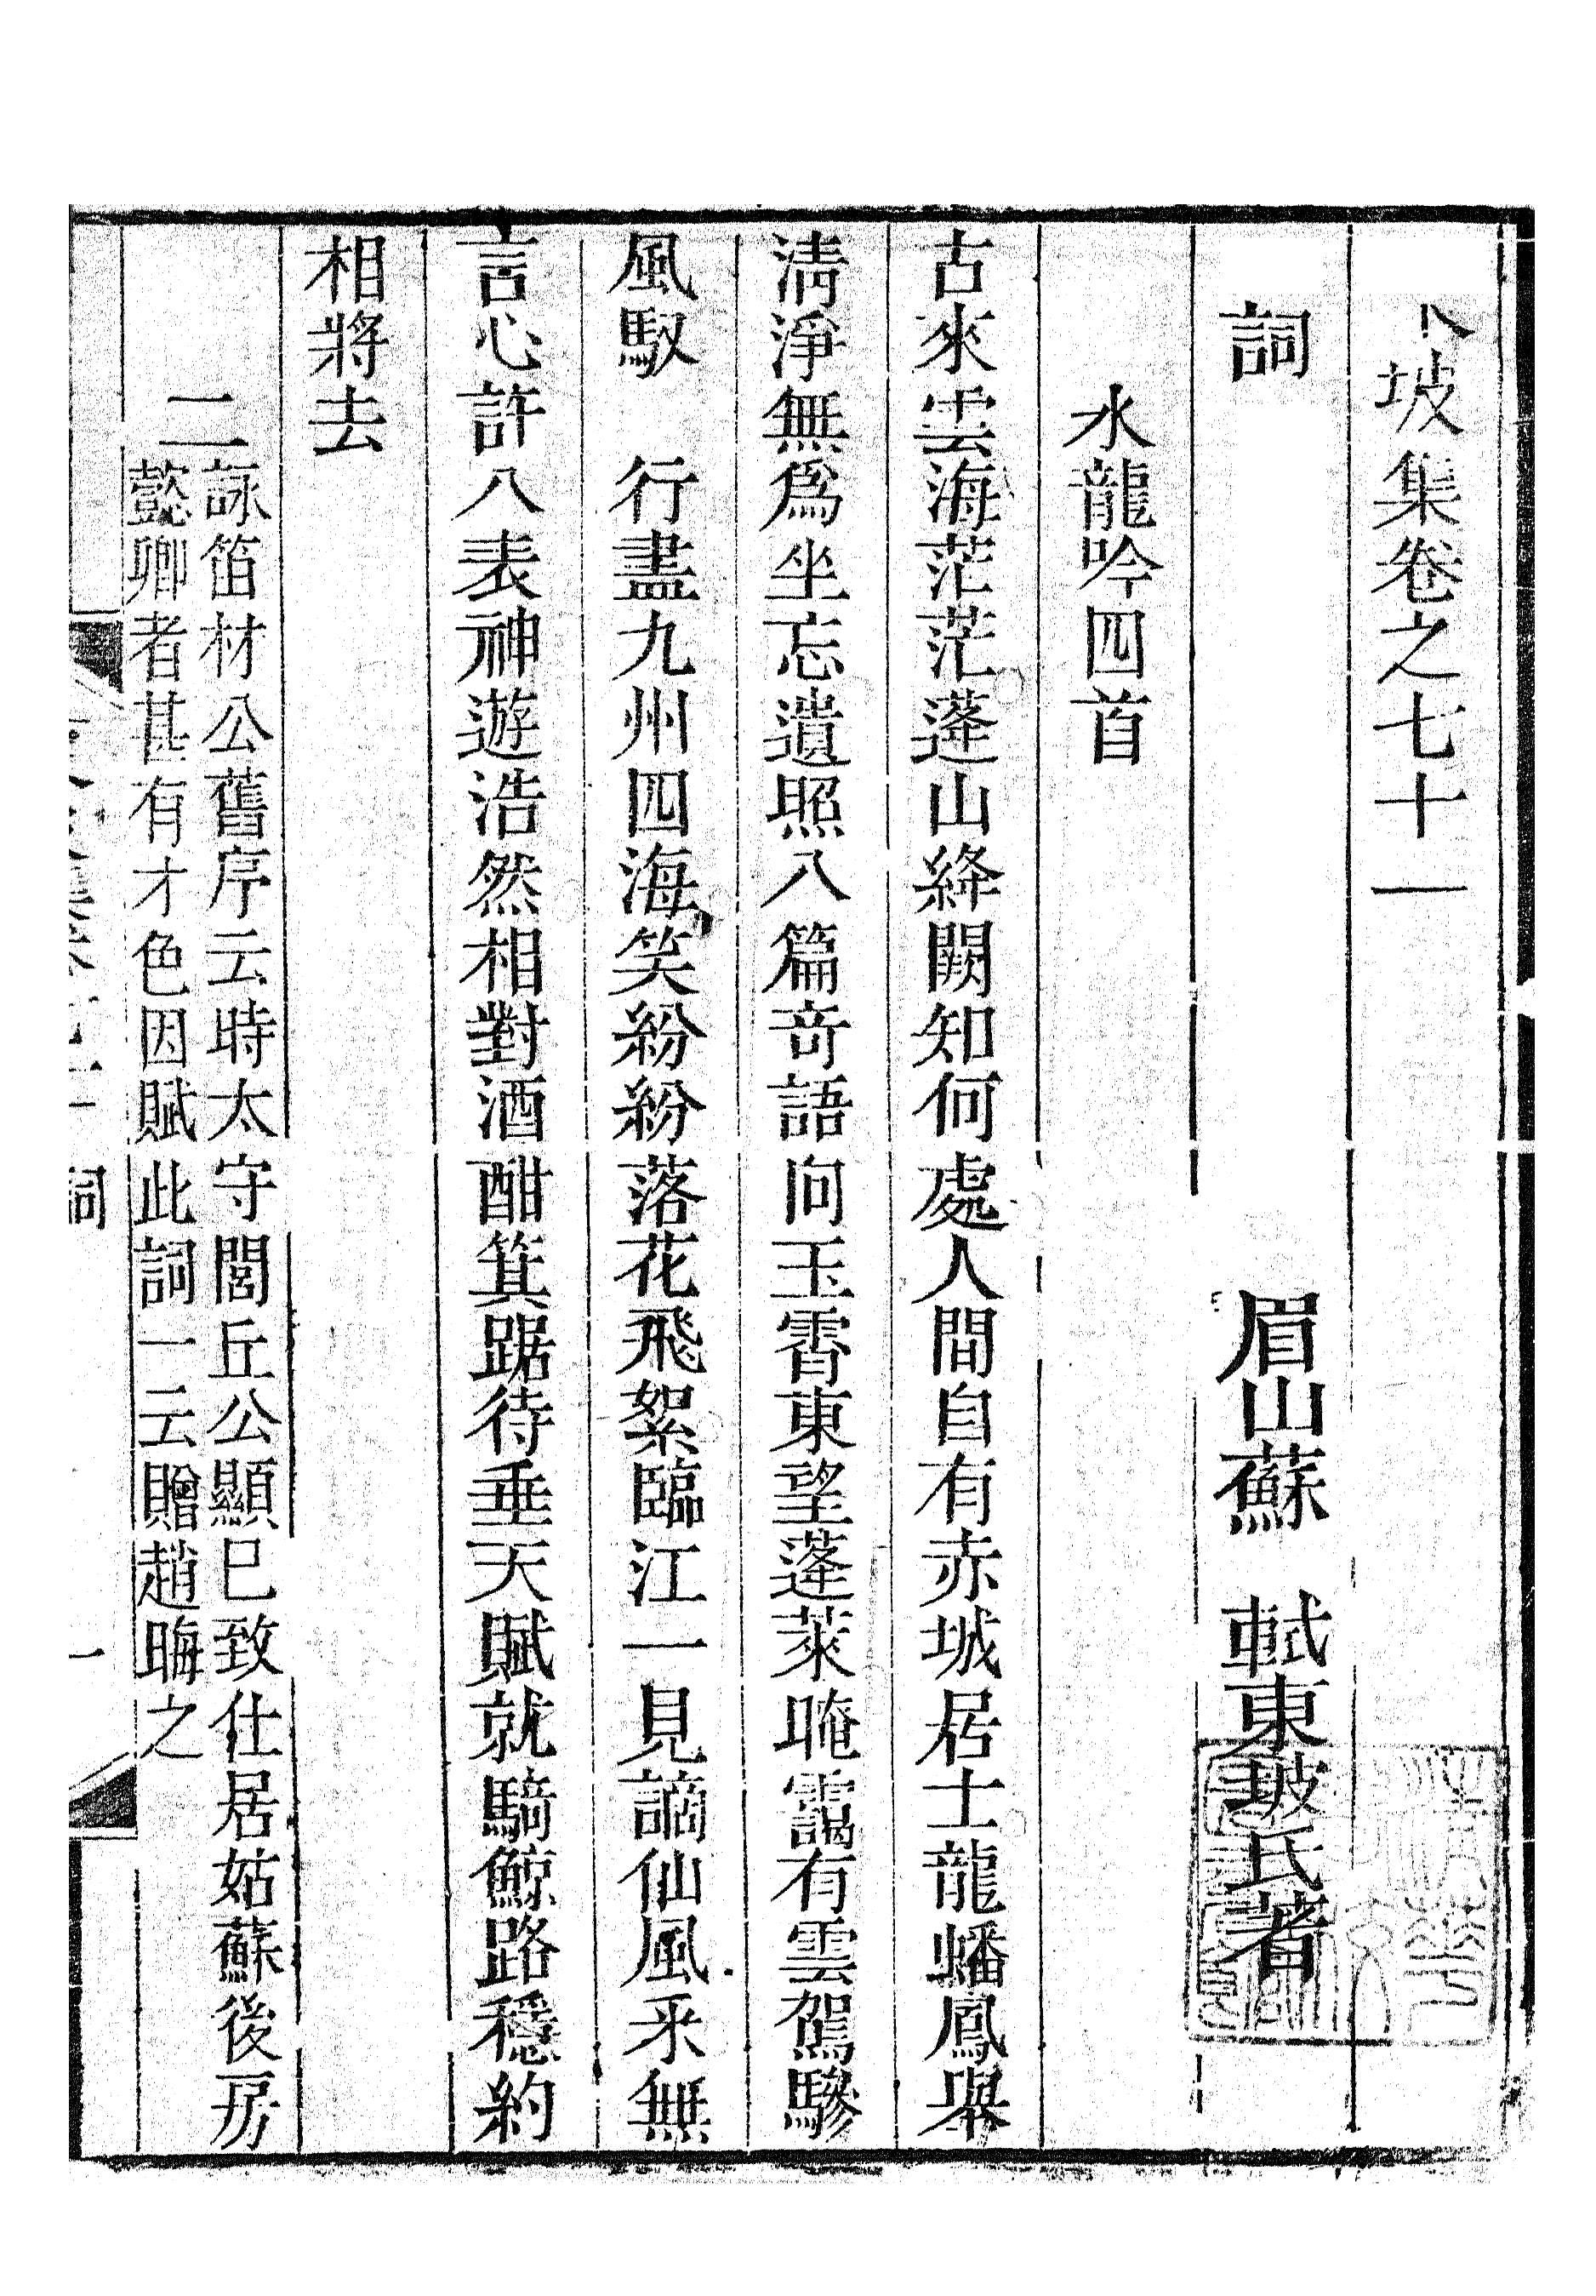 坡集卷之七十一
詞
眉山蘇 軾東坡氏著
水龍吟四首
古來雲海茫茫蓬山絳闕知何處人間自有赤城居士龍蟠鳳舉
清淨無爲坐忘遺照八篇奇語向玉霄東望蓬萊晻靄有雲駕驂
風馭 行盡九州四海笑紛紛落花飛絮臨江一見謫仙風采無
言心許八表神遊浩然相對酒酣箕踞待垂天賦就騎鯨路穩約
相將去
二詠笛材公舊序云時太守閭丘公顯已致仕居姑蘇後房
懿卿者甚有才色因賦此詞一云贈趙晦之
詞
一